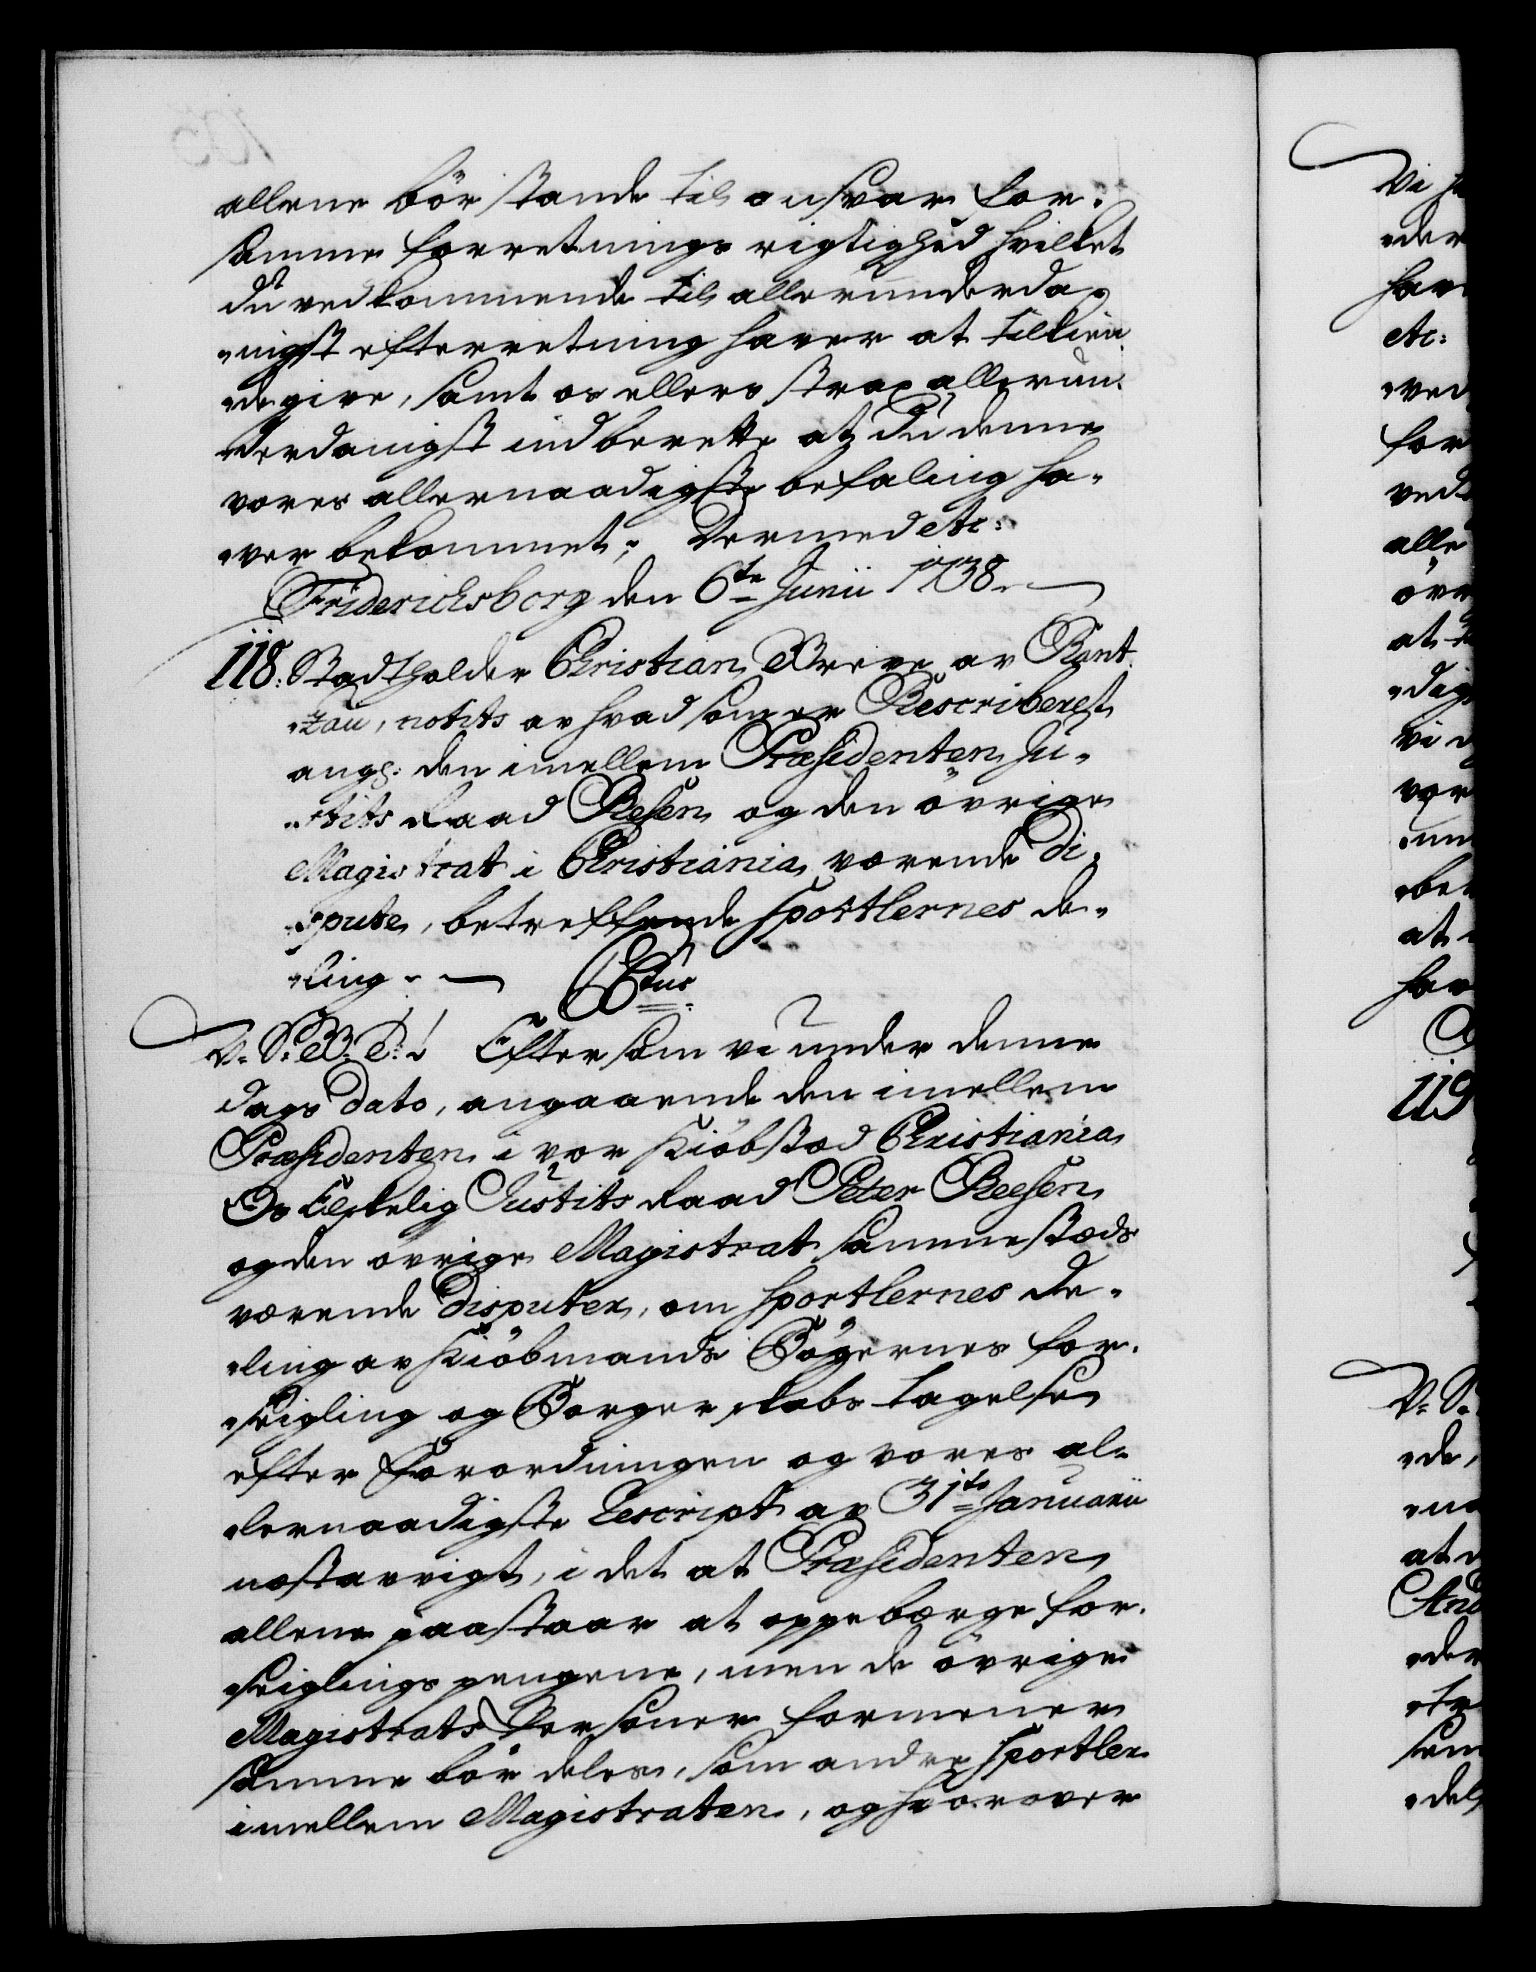 allene bör stande til ansvar for
samme forretnings rigtighed hvilket
du vedkommende til allerunderda-
nigst efterretning haver at tilkien
degive, samt os ellers strax allerun-
derdanigst indberette at du denne
vores allernaadigste befaling ha-
ver bekommet; Dermed etc:
Friderichsborg den 6te Junii 1738.
118. Stadtholder Christian Greve av Rant
zau, notits av hvad som er Rescriberet
angl: den imellem Præsidenten Ju-
stits Raad Resen og den övrige
Magistrat i Christiania værende di-
spute, betreffende Sportlernes de-
ling. Ctus
V. S. B. T.! Eftersom vi under denne
dags dato, angaaende den imellem
Præsidenten i vor Kiöbstad Christiania
Os Elskelig Justits Raad Peter Reesen
og den övrige Magistrat sammestæds
værende disputer, om Sportlernes de-
ling av Kiöbmands Bögernes for-
seigling og Borgerskabs tagelse
efter Forordningen og vores al-
lernaadigste Rescript av 31te Januarii
næstavvigt, i det at Præsidenten
allene paastaar at oppebærge for-
seiglings pengene, men de övrige
Magistrats Personer formener
samme bör deles, som andre Sportler
imellem Magistraten, og hvorover
Vi h
der
hav
etc:
ved
for
ved
alle
övr
at
dig
vi
vor
un
be
at
hav
119
V. S.
de,
at
And
der
tr
sam
del